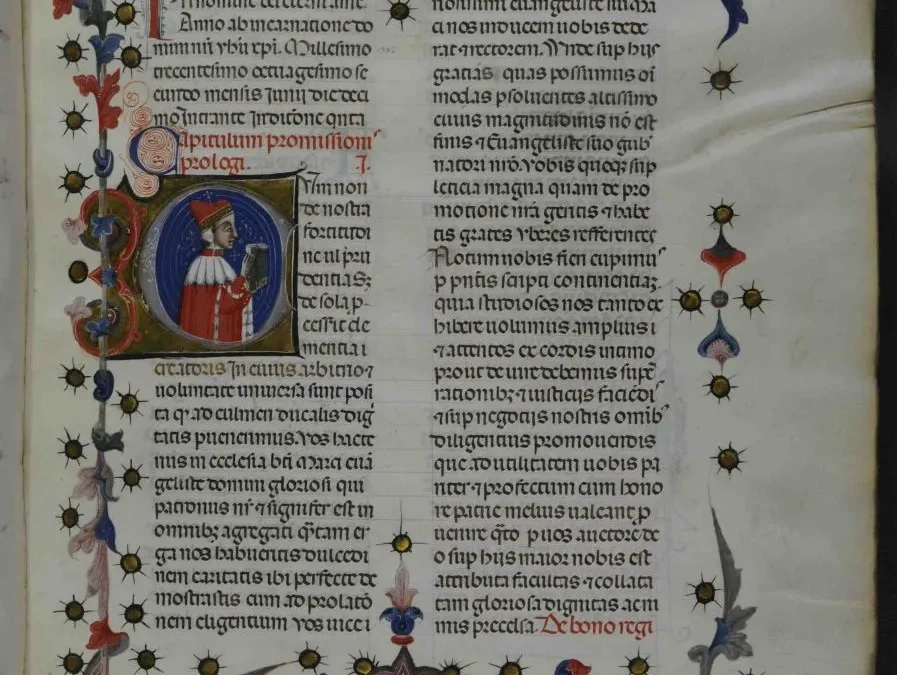 Anno ab incarnatione do
trecentesimo octuagesimo se
cundo mensis Junij die deci
mo Intrante Inditōne qnta
Capitulum promissioni⁹
prologi. I.
Cvm non
de nostra
fortitudi
ne ul pru
dentia Sꝫ
de sola p
cessit cle
mentia i
creatoris In cuius arbitrio ⁊
uoluntate uniuersa sunt posi
ta qꝫ ad culmen ducalis dig
tatis puenerimus. vos hacte
nus in ecclesia bti Marci euā
geliste domini gloriosi qui
patronus nr̄ ⁊ signifer est in
omnibꝫ agregati qȳtam er
ga nos habueritis dulcedi
nem caritatis ibi perfecte de
mostrastis cum ad prolatō
nem eligentium vos uice i
ci nos inducem uobis dede
rat ⁊ rectorem. Vnde sup hijs
gratias quas possumus oī
modas psoluentes altissimo
cuius magnitudinis nō est
finis ⁊ Euangeliste suo gub
natori nrō. vobis quoqꝫ sup
leticia magna quam de pro
motione nrā geritis ⁊ habe
tis grates vberes refferentes
Notum uobis fieri cupimu⁹
p pntis scripti continentiaꝫ
quia studiosos nos tanto ex
hibere uolumus amplius i
⁊ attentos ex cordis intimo
prout de iure debemus supē
rationibꝫ ⁊ iusticijs faciēdi⁹
⁊ sup negotijs nostris omib⁹
diligentius promouendis
que ad utilitatem uobis pa
riter ⁊ profectum cum hono
re patrie melius ualeant p
uenire qto p uos auctore de
o sup hijs maior nobis est
attributa facultas ⁊ collata
tam gloriosa dignitas ac ni
mis precelsa. De bono regi